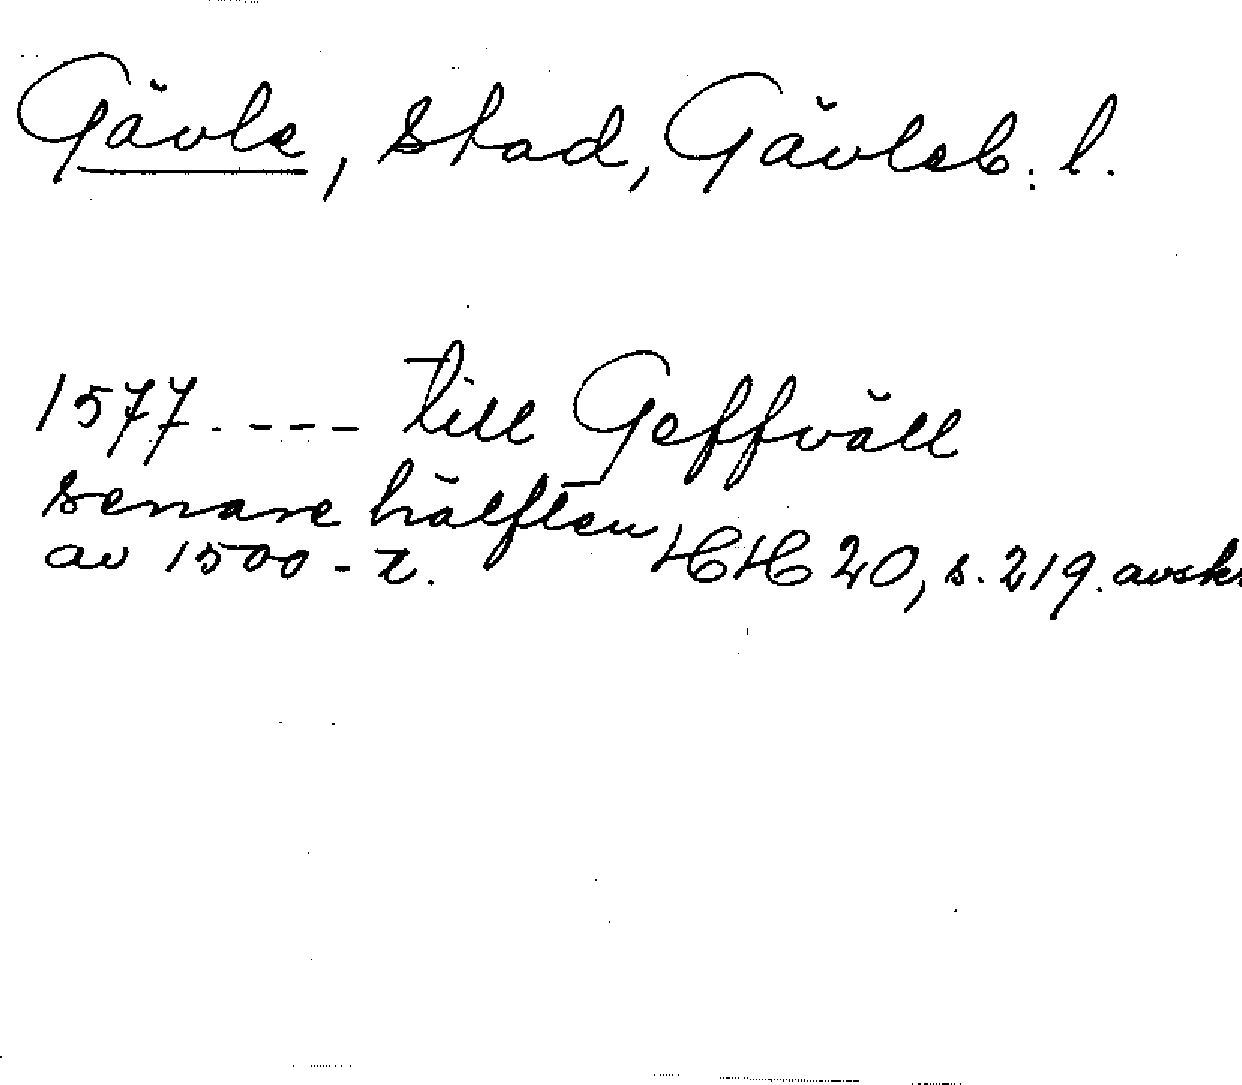 Gävle, stad, Gävleb. l.
1577. ---- till Geffväll
senare hälften
av 1500-t. HH 20, s. 219. avskr